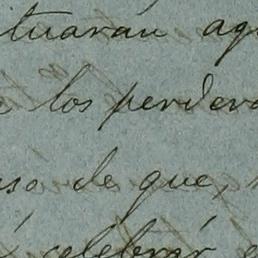 ituarán aqu
los perdera
uso de que,
celebrar